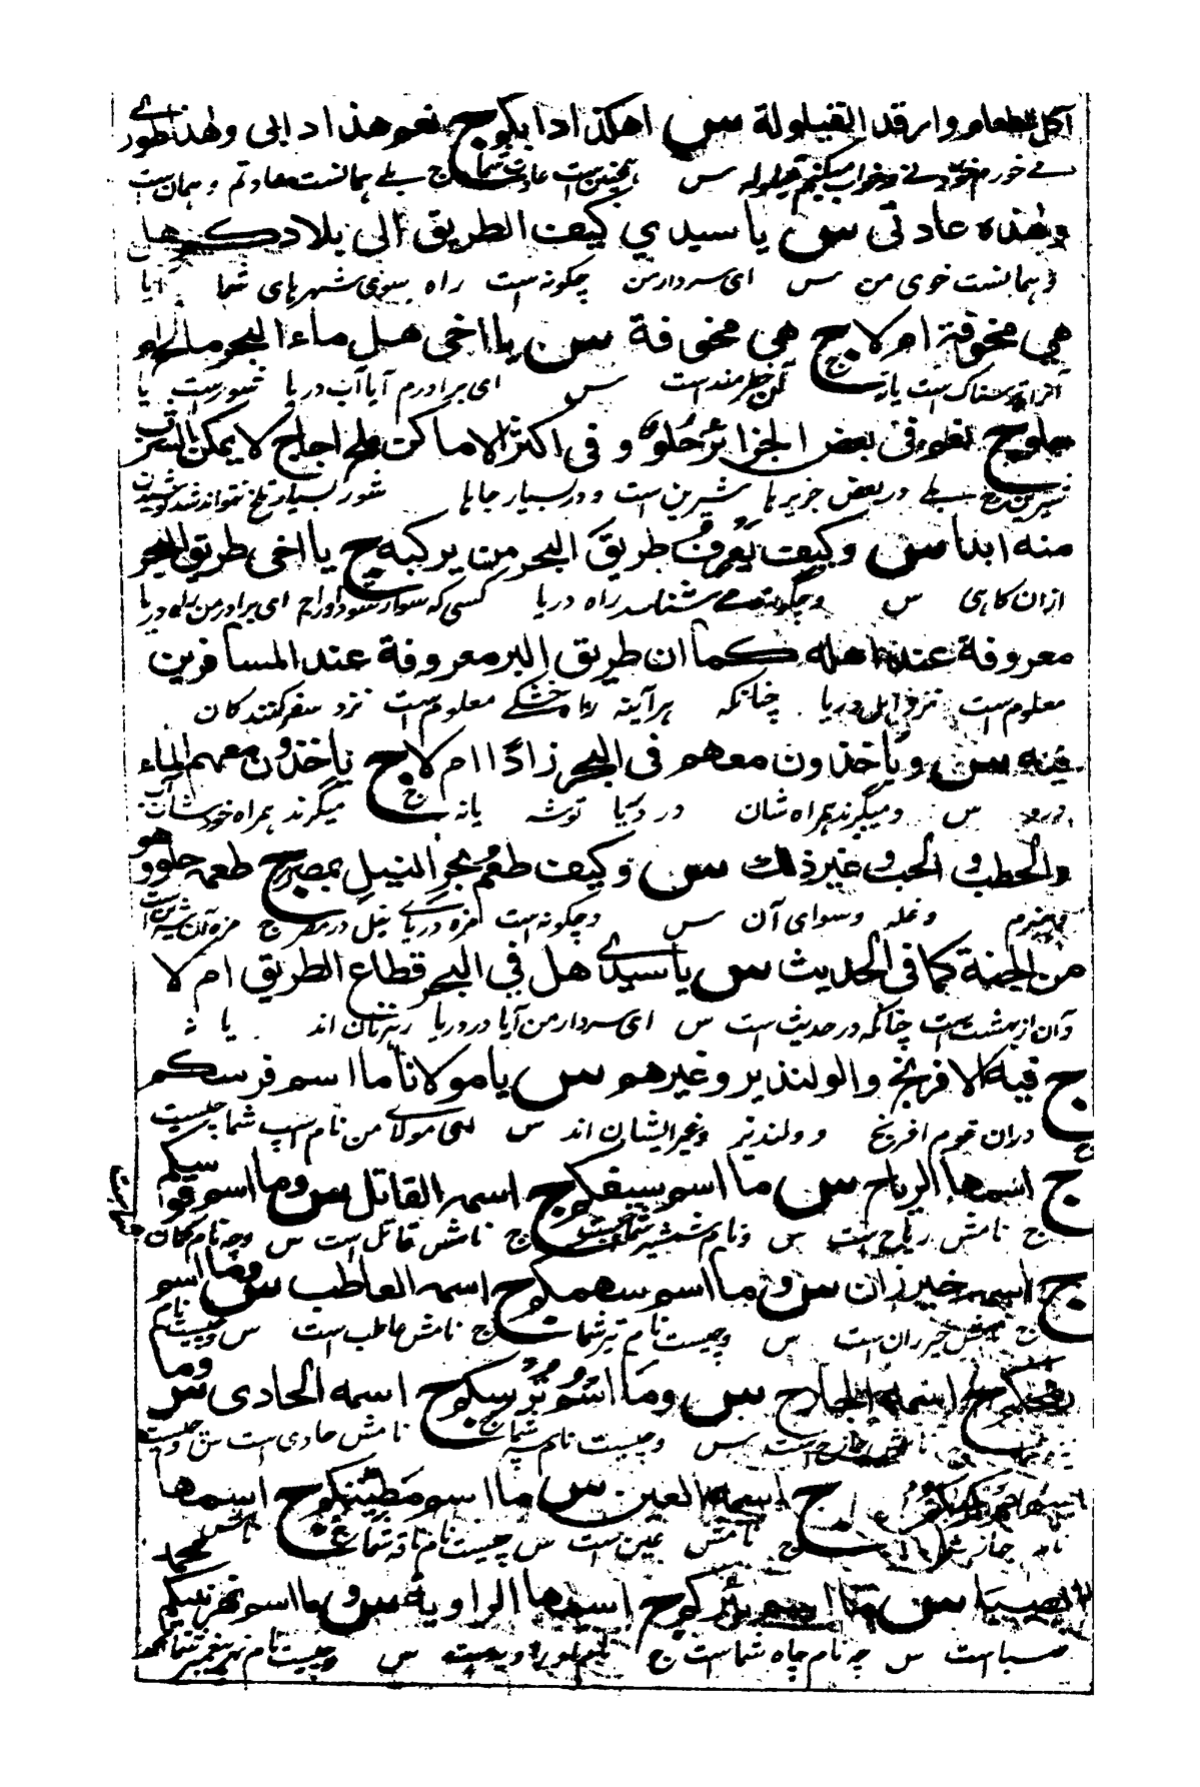 آكل الطعام وارقد القيلولة س اهكذا دابكم ج نعم هذا دابى وهذا طورى
مى خورم خوردنى وخواب ميكنم قيلوله س همچنين است عادت شما ج بلى همانست عادتم و همان است
وهذه عادتى س يا سيدي كيف الطريق الى بلادكم هل
و همانست خوى من س اى سردار من چگونه است راه بسوى شهرهاى شما آيا
هي مخوفة ام لا ج هي مخوفة س يا اخى هل ماء البحر مالح ام
آن راه است يا نه آن خطرمند است س اى برادرم آيا آب دريا شور است يا
حلو ج نعم فى بعض الجزائر حلو و فى اكثر الاماكن ملح اجاج لا يمكن الشرب
شيرين ج بلى در بعض جزيرها شيرين است و در بسيار جاها شور بسيار تلخ نتواند شد نوشيدن
منه ابدا س وكيف يعرف طريق البحر من يركبه ج يا اخى طريق البحر
ازان گاهى س وچگونه مى شناسد راه دريا كسى كه سوار شود او را ج اى برادر من راه دريا
معروفة عند اهله كما ان طريق البر معروفة عند المسافرين
معلوم است نزد اهل دريا چنانكه هرآينه راه خشكى معلوم است نزد سفر كنندگان
فيه س ويأخذون معهم فى البحر زادا ام لا ج يأخذون معهم الماء
درو س وميگيرند همراه شان در دريا توشه يا نه ج ميگيرند همراه خودشان آب
والحطب و الحب و غير ذلك س وكيف طعم بحر النيل بمصر ج طعمه حلو و هو
وهيزم و غله وسواى آن س وچگونه است مزه درياى نيل در مصر ج مزه آن شيرين است
من الجنة كما فى الحديث س يا سيدى هل في البحر قطاع الطريق ام لا
وآن از بهشت است چنانكه در حديث است س اى سردار من آيا در دريا رهزنان اند يا نه
ج فيه الافرنج والولنديز وغيرهم س يا مولانا ما اسم فرسكم
ج دران قوم افرنج و ولنديز وغير ايشان اند س اى مولاى من نام اسپ شما چيست
ج اسمها الرياح س ما اسم سيفكم ج اسمه القاتل س وما اسم قوسكم
ج نامش رياح است س ونام شمشير شما چيست ج نامش قاتل است س وچه نام كمان شما است
ج اسمه خيزران س و ما اسم سهمكم ج اسمه العاطب س وما اسم
ج نامش خيزران است س وچيست نام تير شما ج نامش عاطب است س وچيست نام
رمحكم ج اسمه الجارح س وما اسم ترسكم ج اسمه الحادى س وما
نامش جارح است س وچيست نام سپر شما ج نامش حادى است س وچيست
ج اسمه العين س ما اسم مطيتكم ج اسمها
ج نامش عين است س چيست نام ناقه شما ج نامش
الصبا س ما اسم بئركم ج اسمها الراوية س و ما اسم نهر نبيكم محمد
صبا است س چه نام چاه شما است ج س وچيست نام نهر پيغمبر شما محمد